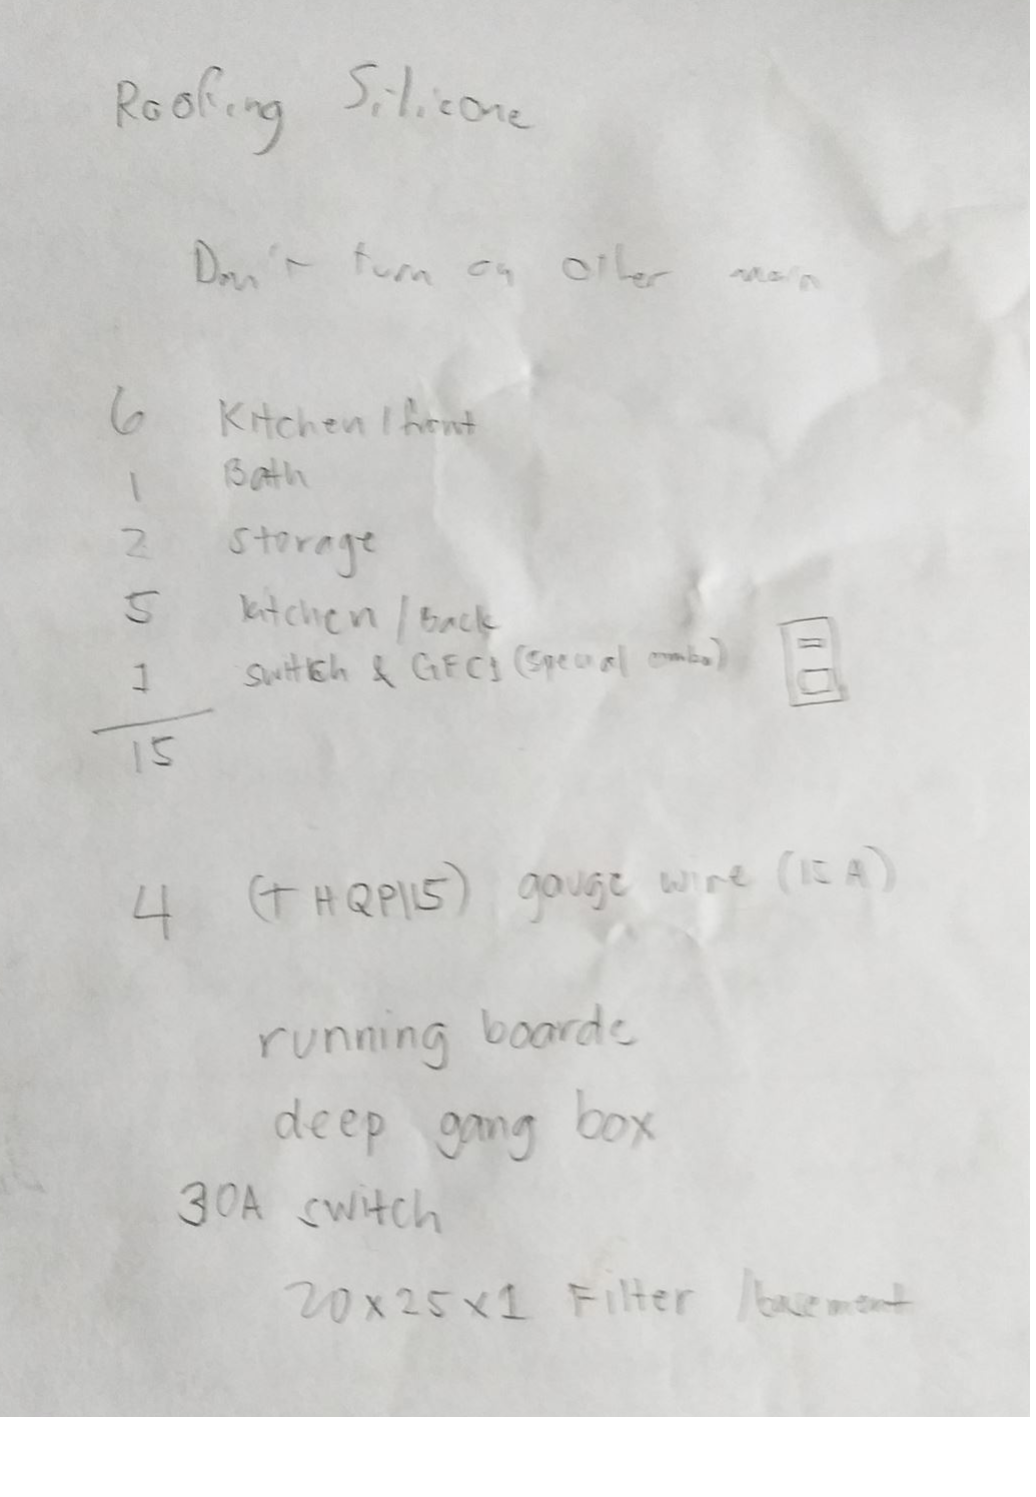 Roofing Silicone
Don't turn on other main
6 Kitchen / front
1 Bath
2 storage
5 kitchen / Back
1 switch & GFCI (special combo)
15
4 (THQP115) gauge wire (15 A)
running boards
deep gang box
30A switch
20x25x1 Filter / basement